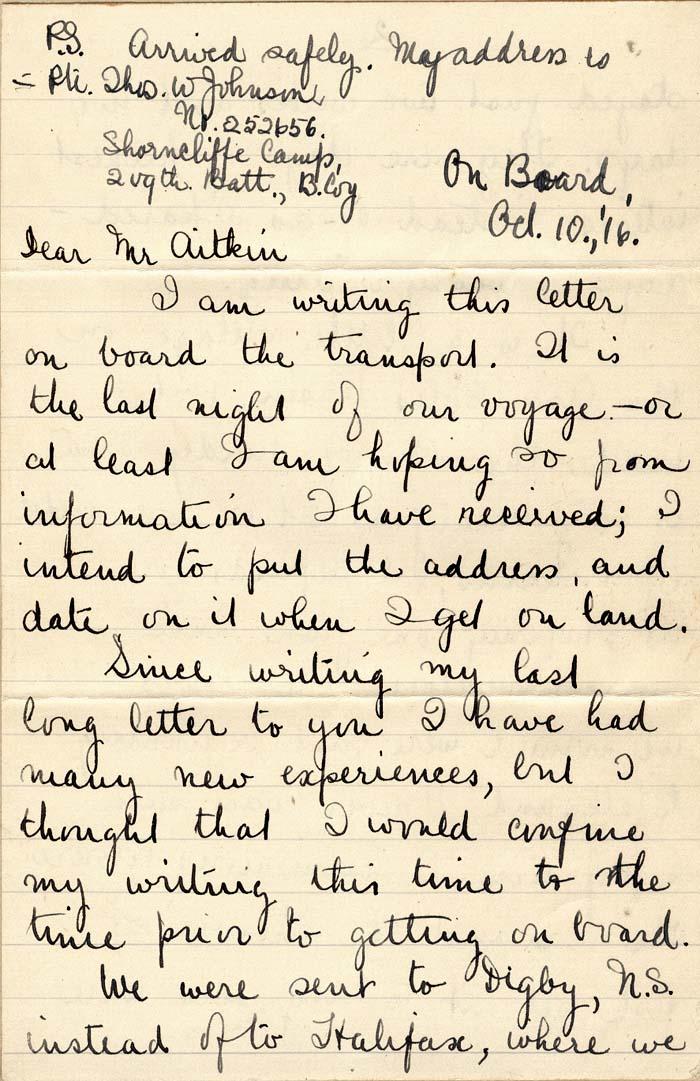 P.S. Arrived safely. My address is
- Pte. Thos. W Johnson
Nr. 252656.
Shorncliffe Camp,
209th. Batt., B. Coy
On Board,
Oct. 10., '16.
Dear Mr Aitkin
I am writing this letter
on board the transport. It is
the last night of our voyage - or
at least I am hoping so from
information I have received; I
intend to put the address, and
date, on it when I get on land.
Since writing my last
long letter to you I have had
many new experiences, but I
thought that I would confine
my writing this time to the
time prior to getting on board.
We were sent to Digby, N.S.
instead of to Halifax, where we